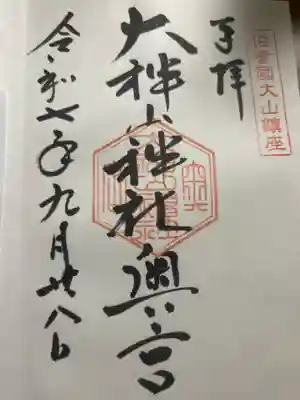 伯耆國大山鎮座
奉拝
大神山神社奥宮
令和七年九月廿八日